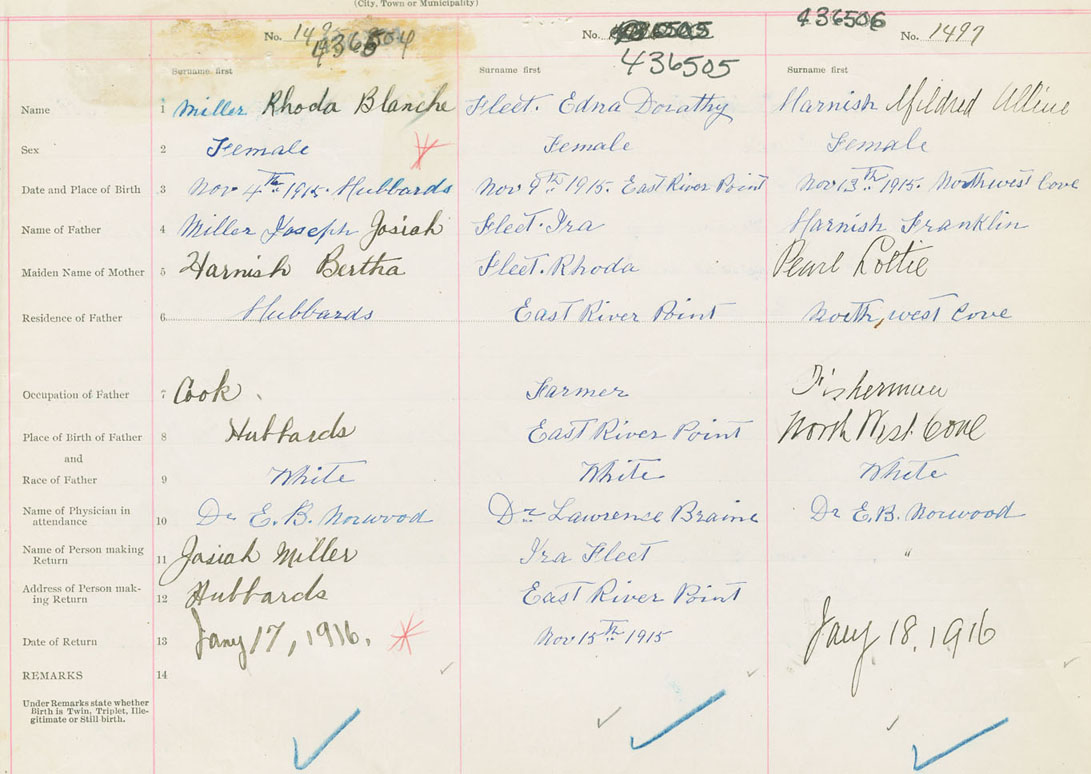 (City, Town or Municipality)
No. 149 436504
No. 436505
436506 No. 1497
Surname first Surname first Surname first
Name 1 Miller Rhoda Blanche Fleet. Edna Dorathy Harnish Mildred Alline
Sex 2 Female Female Female
Date and Place of Birth 3 Nov. 4th 1915. Hubbards Nov 9th 1915. East River Point Nov 13th 1915. Northwest Cove
Name of Father 4 Miller Joseph Josiah Fleet. Ira Harnish Franklin
Maiden Name of Mother 5 Harnish Bertha Fleet. Rhoda Pearl Lottie
Residence of Father 6 Hubbards East River Point North, west Cove
Occupation of Father 7 Cook. Farmer Fisherman
Place of Birth of Father 8 Hubbards East River Point North West Cove
and
Race of Father 9 White White White
Name of Physician in
attendance 10 Dr E. B. Norwood Dr. Lawrence Braine Dr E.B. Norwood
Name of Person making
Return 11 Josiah Miller Ira Fleet "
Address of Person mak-
ing Return 12 Hubbards East River Point
Date of Return 13 Jany 17, 1916. Nov 15th 1915 Jany 18, 1916
REMARKS 14
Under Remarks state whether
Birth is Twin, Triplet, Ille-
gitimate or Still birth.